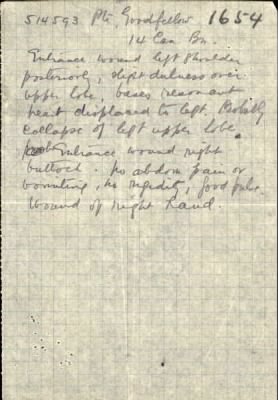 514593 Pte. Goodfellow 1654
14 Can Bn.
Entrance wound left shoulder
posteriorly, slight dulness over
upper lobe, bases resonant
heart displaced to left. Probably
collapse of left upper lobe.
Entrance wound right
buttock. No abdom pain or
vomiting, no rigidity, good pulse.
Wound of right hand.